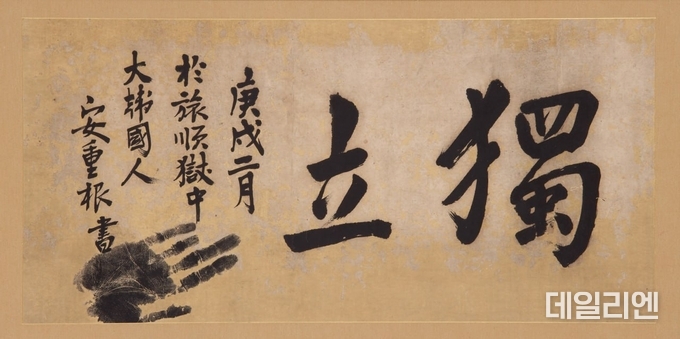 獨立
庚戌二月
於旅順獄中
大韓國人
安重根書
데일리엔